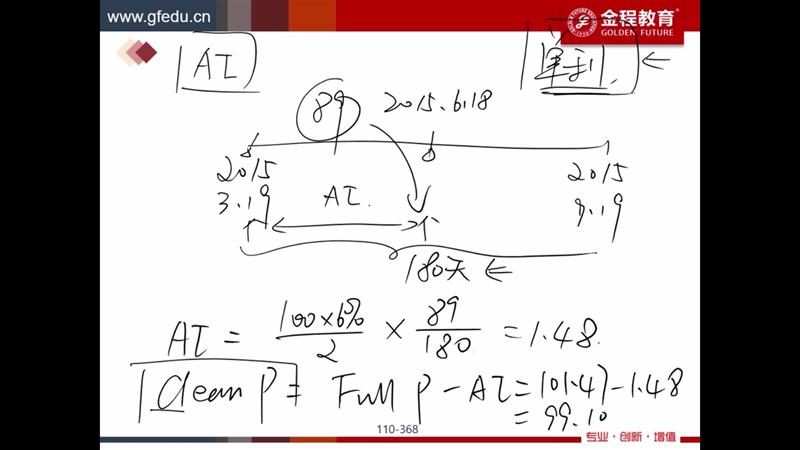 www.gfedu.cn
金程教育
GOLDEN FUTURE
AI
单利
89
2015.6.18
2015
3.19
AI.
2015
9.19
180天
AI = 100×6%/2 × 89/180 = 1.48.
Clean P = Full P - AI = 101.47-1.48
= 99.10
110-368
专业·创新·增值